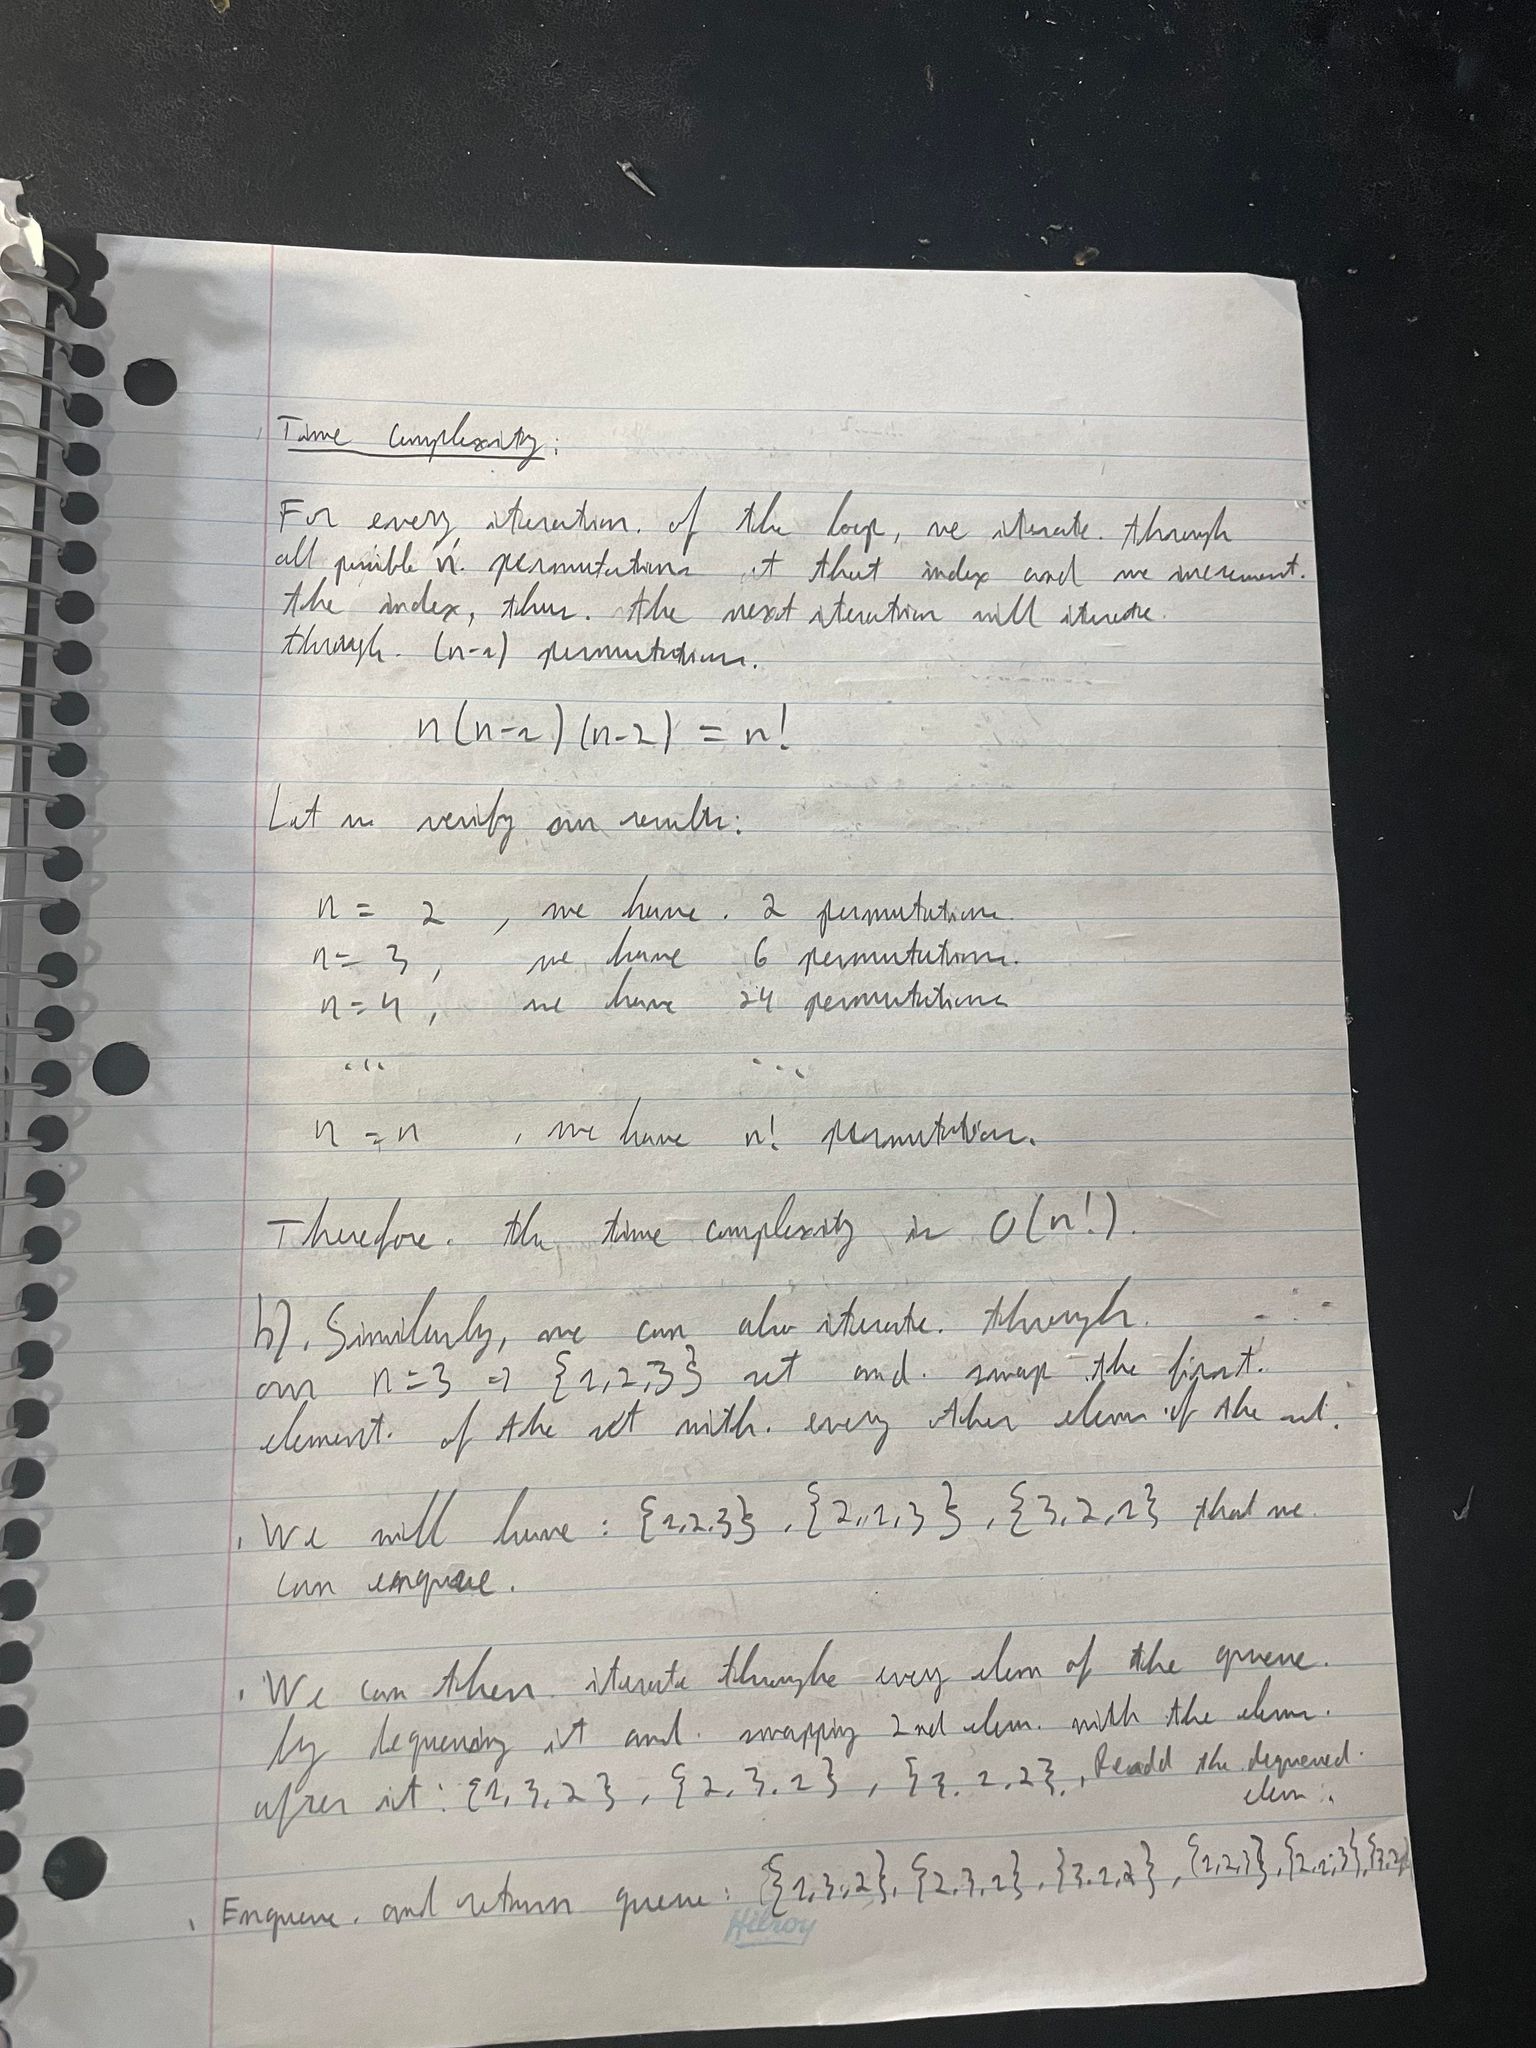 Time Complexity:
For every iteration of the loop, we iterate through
all possible n permutations at that index and we increment
the index, thus the next iteration will iterate
through (n-1) permutations.
n(n-1)(n-2) = n!
Let us verify our results:
n = 2, we have 2 permutations.
n = 3, we have 6 permutations.
n = 4, we have 24 permutations
... ...
n = n, we have n! permutations.
Therefore the time complexity is O(n!).
b). Similarly, we can also iterate through
our n=3 => {1,2,3} set and swap the first
element of the set with every other elem of the set.
. We will have: {1,2,3}, {2,1,3}, {3,2,1} that we
can enqueue.
. We can then iterate through every elem of the queue
by dequeuing it and swapping 2nd elem. with the elem
after it: {1,3,2}, {2,3,1}, {3,1,2}, Readd the dequeued
elem.
. Enqueue and return queue: {{1,3,2}, {2,3,1}, {3,1,2}, {1,2,3}, {2,1,3}, {3,2,1
Hilroy